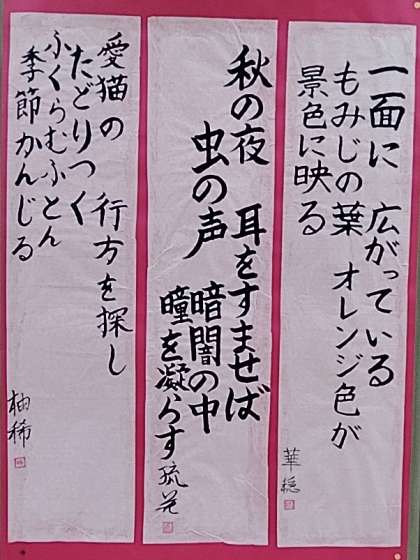 一面に 広がっている
もみじの葉 オレンジ色が
景色に映る
華穏
秋の夜 耳をすませば
虫の声 暗闇の中
瞳を凝らす
琉花
愛猫の 行方を探し
たどりつく
ふくらむふとん
季節かんじる
柚稀